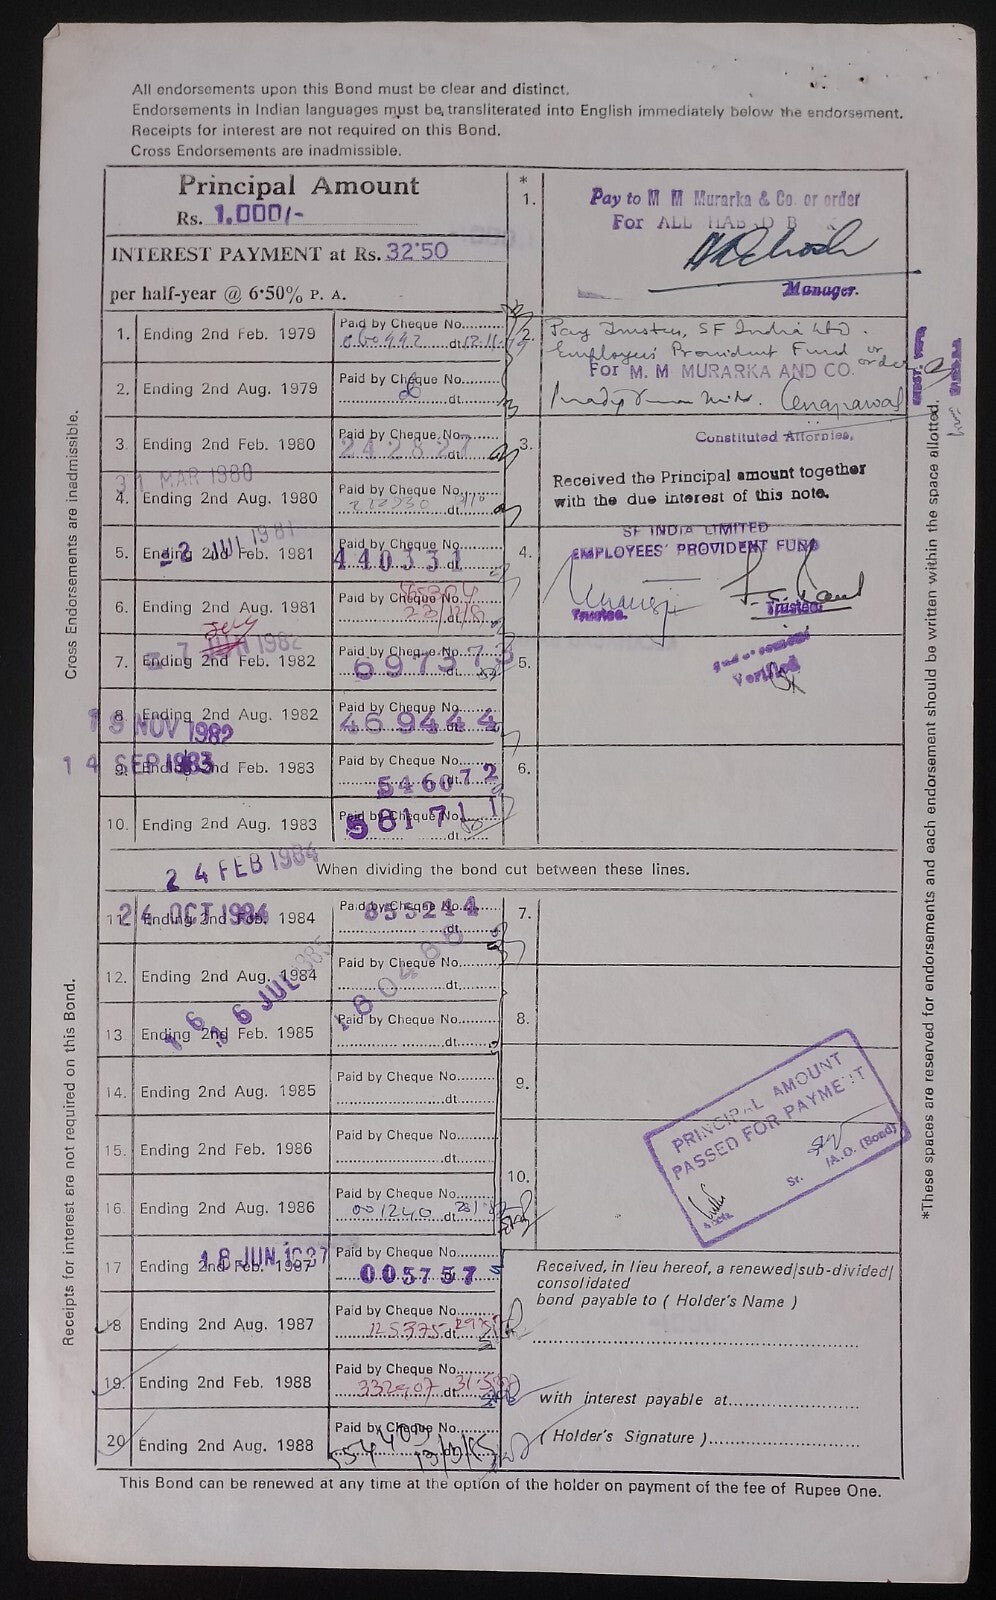 All endorsements upon this Bond must be clear and distinct.
Endorsements in Indian languages must be transliterated into English immediately below the endorsement.
Receipts for interest are not required on this Bond.
Cross Endorsements are inadmissible.
Principal Amount
Rs. 1.000/-
INTEREST PAYMENT at Rs. 32·50
per half-year @ 6·50% P. A.
1. Ending 2nd Feb. 1979 Paid by Cheque No.
dt.
2. Ending 2nd Aug. 1979 Paid by Cheque No.
dt.
3. Ending 2nd Feb. 1980 Paid by Cheque No.
242827 dt.
31 MAR 1980
4. Ending 2nd Aug. 1980 Paid by Cheque No.
dt.
2 JUL 1981
5. Ending 2nd Feb. 1981 Paid by Cheque No.
440331 dt.
6. Ending 2nd Aug. 1981 Paid by Cheque No.
dt.
JUN 1982
7. Ending 2nd Feb. 1982 Paid by Cheque No.
697373 dt.
8. Ending 2nd Aug. 1982 Paid by Cheque No.
19 NOV 1982
469444 dt.
14 SEP 1983
9. Ending 2nd Feb. 1983 Paid by Cheque No.
546072 dt.
10. Ending 2nd Aug. 1983 Paid by Cheque No.
581711 dt.
24 FEB 1984
When dividing the bond cut between these lines.
24 OCT 1984
11. Ending 2nd Feb. 1984 Paid by Cheque No.
855244 dt.
12. Ending 2nd Aug. 1984 Paid by Cheque No.
dt.
16 JUL 1985
180488
13. Ending 2nd Feb. 1985 Paid by Cheque No.
dt.
14. Ending 2nd Aug. 1985 Paid by Cheque No.
dt.
15. Ending 2nd Feb. 1986 Paid by Cheque No.
dt.
16. Ending 2nd Aug. 1986 Paid by Cheque No.
001240 dt.
18 JUN 1987
17 Ending 2nd Feb. 1987 Paid by Cheque No.
005757 dt.
18 Ending 2nd Aug. 1987 Paid by Cheque No.
125375 dt.
19. Ending 2nd Feb. 1988 Paid by Cheque No.
332907 dt. 31.5.88
20 Ending 2nd Aug. 1988 Paid by Cheque No.
554403
*
1. Pay to M M Murarka & Co. or order
For ALLAHABAD BANK
Manager.
2. Pay Trustees, SF India Ltd.
Employees' Provident Fund or order
For M. M. MURARKA AND CO.
Constituted Attornies.
3. Received the Principal amount together
with the due interest of this note.
4. SF INDIA LIMITED
EMPLOYEES' PROVIDENT FUND
Trustee. Trustee.
Endorsement
Verified
5.
6.
7.
8.
9.
10.
PRINCIPAL AMOUNT
PASSED FOR PAYMENT
Sr. A.O. (Bond)
Received, in lieu hereof, a renewed|sub-divided|
consolidated
bond payable to ( Holder's Name )
with interest payable at
( Holder's Signature )
This Bond can be renewed at any time at the option of the holder on payment of the fee of Rupee One.
Cross Endorsements are inadmissible.
Receipts for interest are not required on this Bond.
*These spaces are reserved for endorsements and each endorsement should be written within the space allotted.